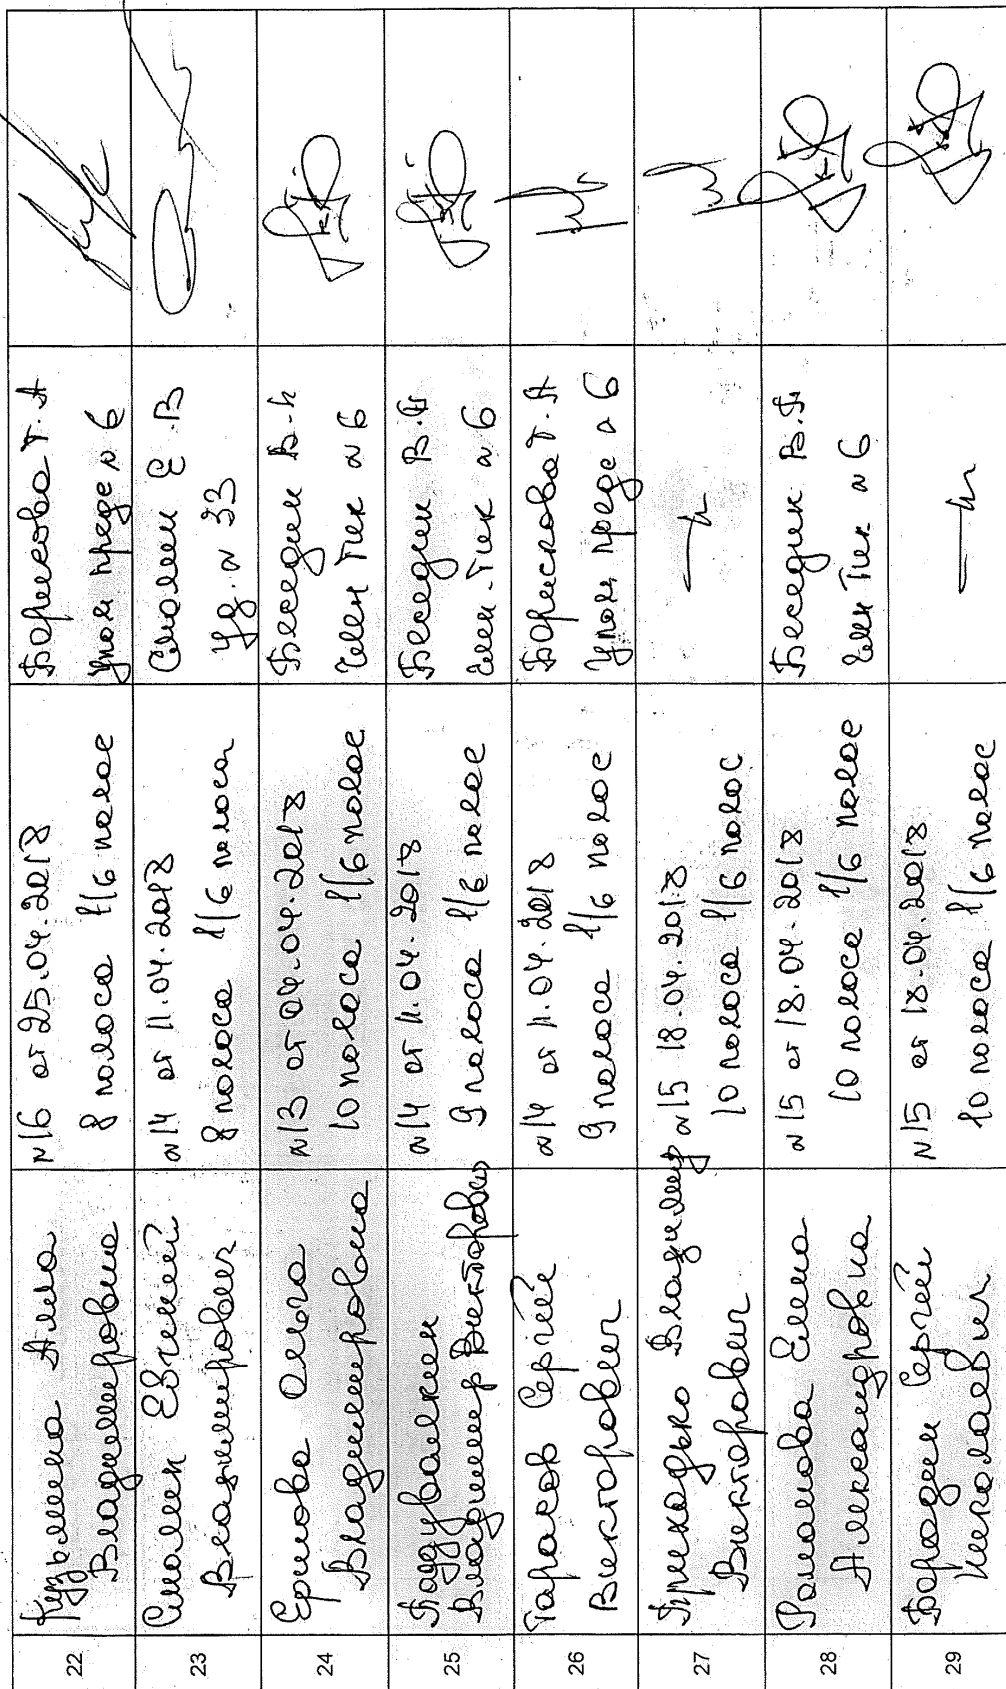 22
Кузьмина Алла
Владимировна
№16 от 25.04.2018
8 полоса 1/6 полос
Борискова Т.А
упол предс № 6
23
Смолин Евгений
Владимирович
№14 от 11.04.2018
8 полоса 1/6 полоса
Смолин Е.В
уд. № 33
24
Ершова Ольга
Владимировна
№13 от 04.04.2018
10 полоса 1/6 полос
Беседин В.
член тик № 6
25
Поддувалкин
Владимир Викторович
№14 от 11.04.2018
9 полоса 1/6 полос
Беседин В.
член тик № 6
26
Тарасов Сергей
Викторович
№14 от 11.04.2018
9 полоса 1/6 полос
Борискова Т.А
упол предс № 6
27
Принадько Владимир
Викторович
№15 18.04.2018
10 полоса 1/6 полос
28
Романова Елена
Александровна
№15 от 18.04.2018
10 полоса 1/6 полос
Беседин В.
член тик № 6
29
Бородин Сергей
Николаевич
№15 от 18.04.2018
10 полоса 1/6 полос